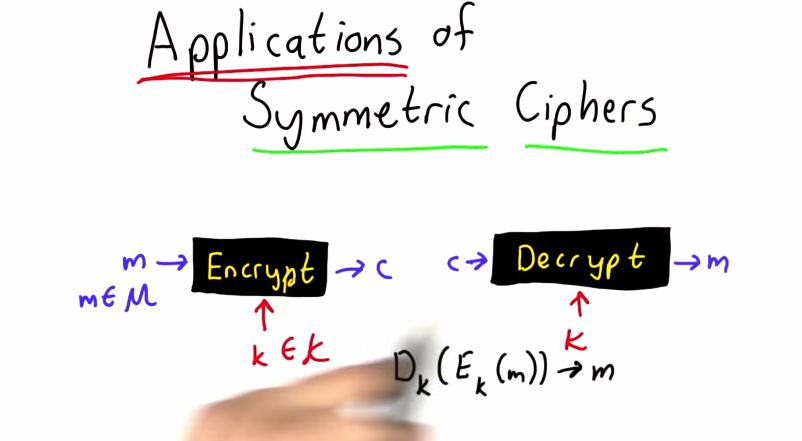 Applications of
Symmetric Ciphers
m → Encrypt → c
c → Decrypt → m
m ∈ M
k ∈ K
K
D_k(E_k(m)) → m